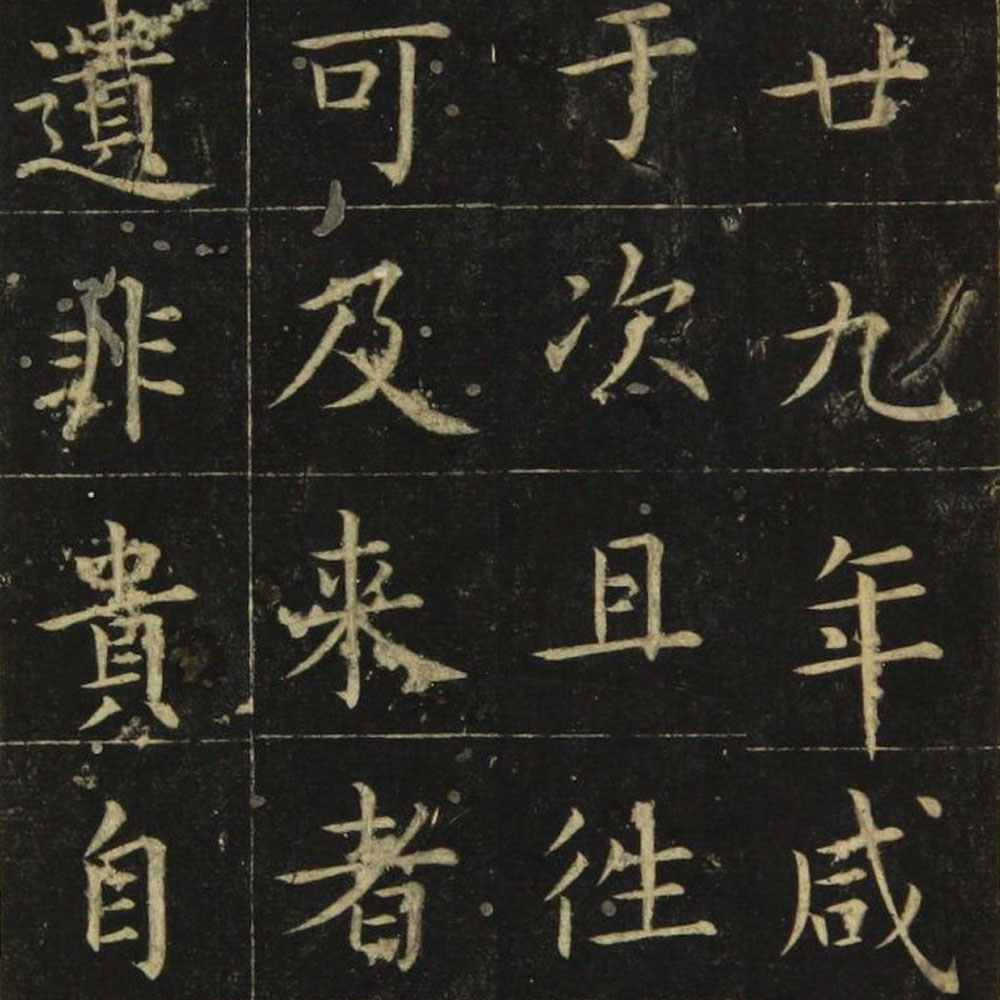 廿九年咸
于次且徃
可及来者
遺非貴自